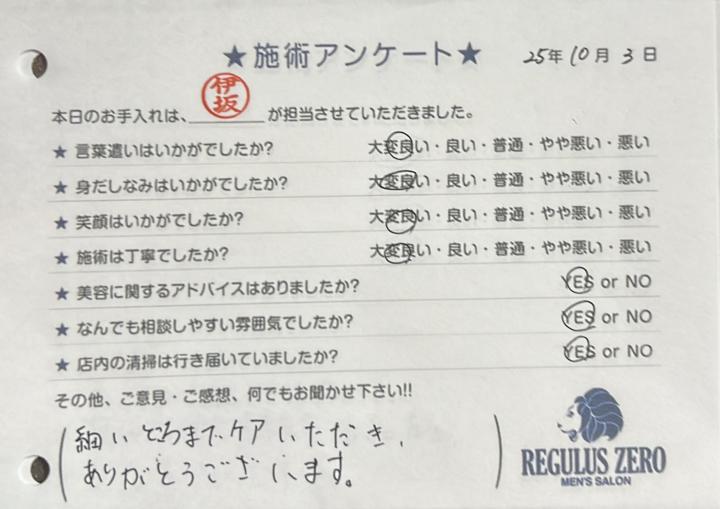 ★施術アンケート★
25年10月3日
本日のお手入れは、伊坂が担当させていただきました。
★ 言葉遣いはいかがでしたか? 大変良い・良い・普通・やや悪い・悪い
★ 身だしなみはいかがでしたか? 大変良い・良い・普通・やや悪い・悪い
★ 笑顔はいかがでしたか? 大変良い・良い・普通・やや悪い・悪い
★ 施術は丁寧でしたか? 大変良い・良い・普通・やや悪い・悪い
★ 美容に関するアドバイスはありましたか? YES or NO
★ なんでも相談しやすい雰囲気でしたか? YES or NO
★ 店内の清掃は行き届いていましたか? YES or NO
その他、ご意見・ご感想、何でもお聞かせ下さい!!
細いところまでケアいただき、
ありがとうございます。
REGULUS ZERO
MEN'S SALON